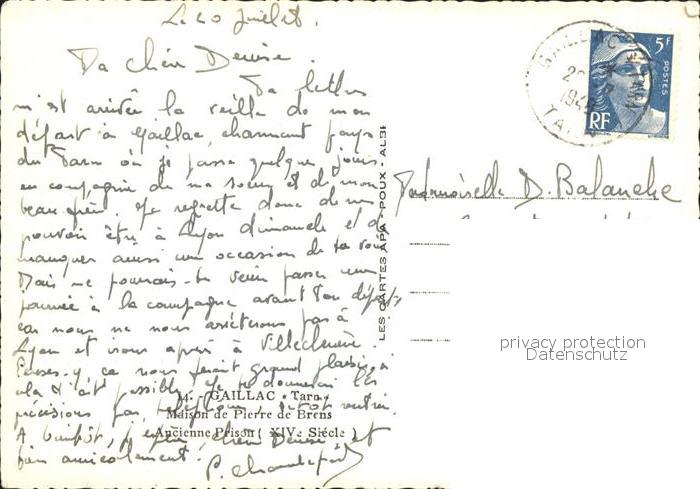 Le 20 Juillet.
Ma chère Denise.
Ta lettre
m'est arrivée la veille de mon
départ à Gaillac, charmant pays
du Tarn où je passe quelques jours
en compagnie de ma soeur et de mon
beau frère. Je regrette donc de ne
pouvoir être à Lyon dimanche et de
manquer ainsi une occasion de te voir
Mais ne pourrais-tu venir passer une
journée à la campagne avant ton départ,
car nous ne nous arrêterons pas à
Lyon et irons après à
Penses-y ça nous ferait grand plaisir, si
cela t'est possible. Je te donnerai les
précisions par téléphone sitôt rentrée.
A bientôt, j'espère, chère Denise et
bien amicalement.
14. - GAILLAC - Tarn -
Maison de Pierre de Brens
Ancienne Prison ( XIVe Siècle )
LES CARTES APA - POUX - ALBI
GAILLAC
TARN
5F
POSTES
RF
Mademoiselle D. Balanche
privacy protection
Datenschutz